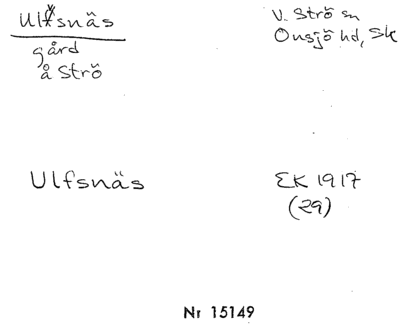 Ulfsnäs
V. Strö sn
gård
Onsjö hd, Sk
å Strö
Ulfsnäs
EK 1917
(29)
Nr 15149